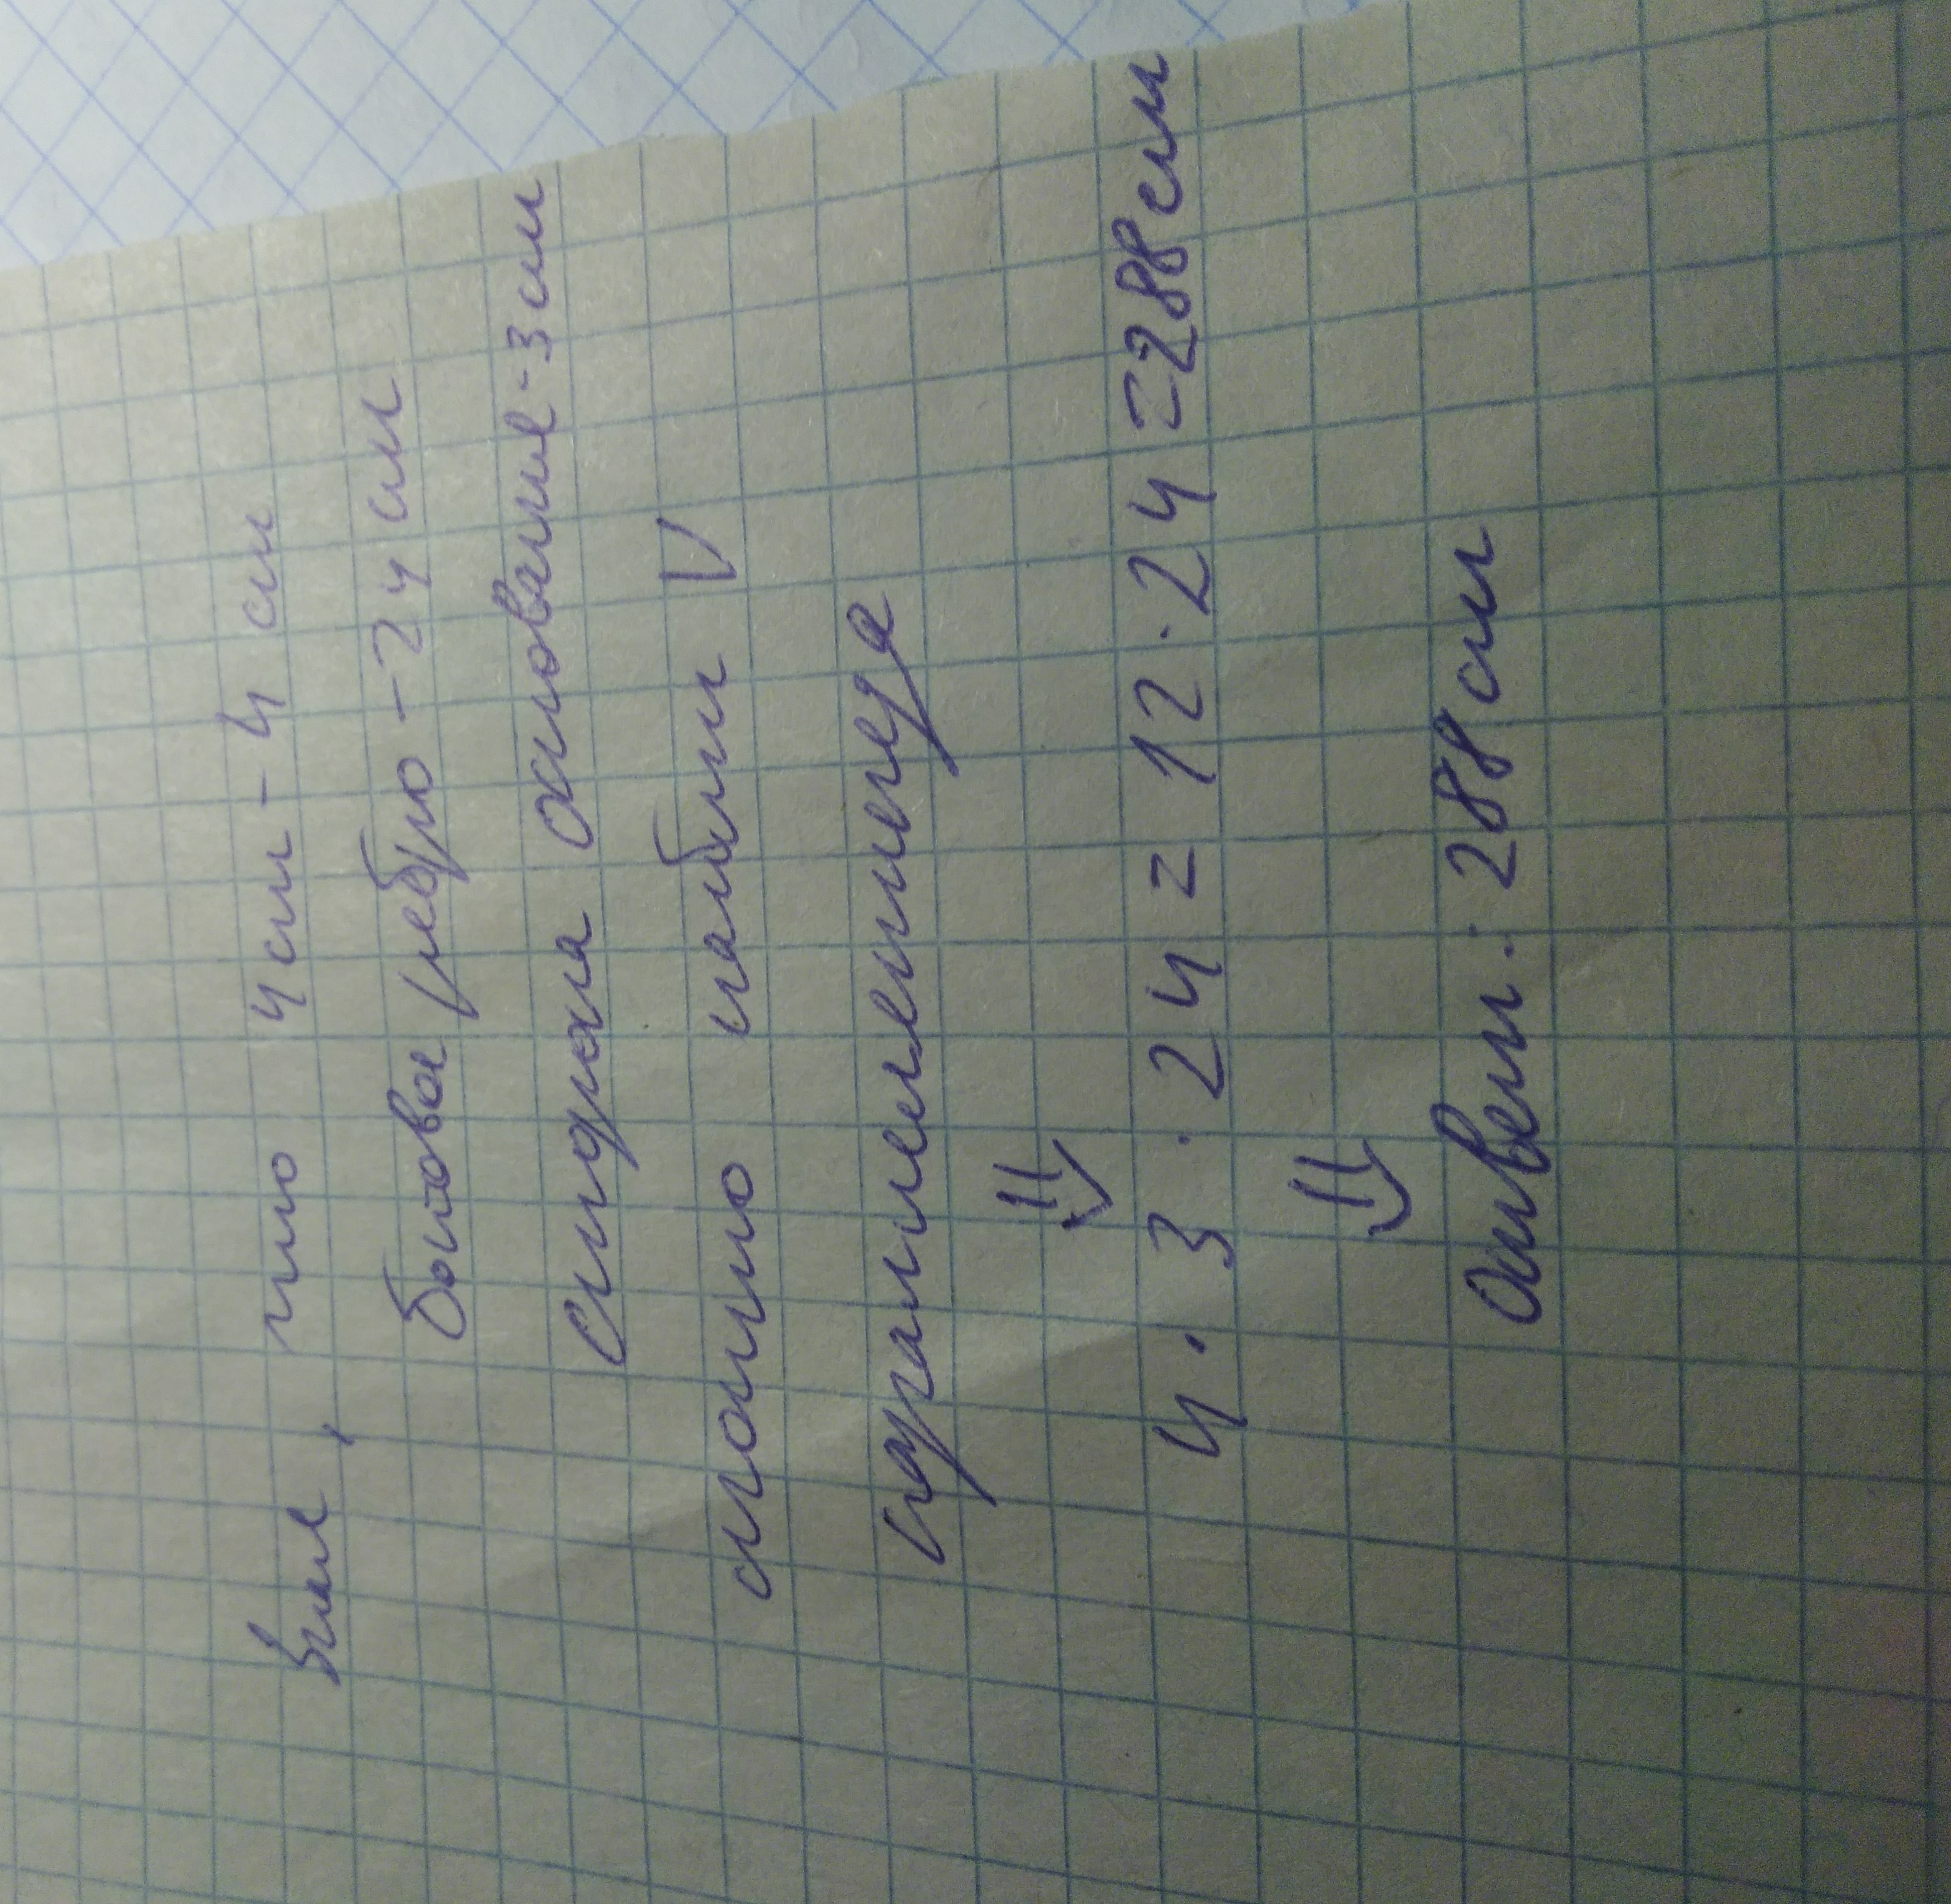 что 4см - 4 см
боковое ребро - 24 см
Сторона основание - 3 см
можно найти V
параллелепипеда
⇓
4 · 3 · 24 = 12 · 24 = 288см
⇓
Ответ: 288см